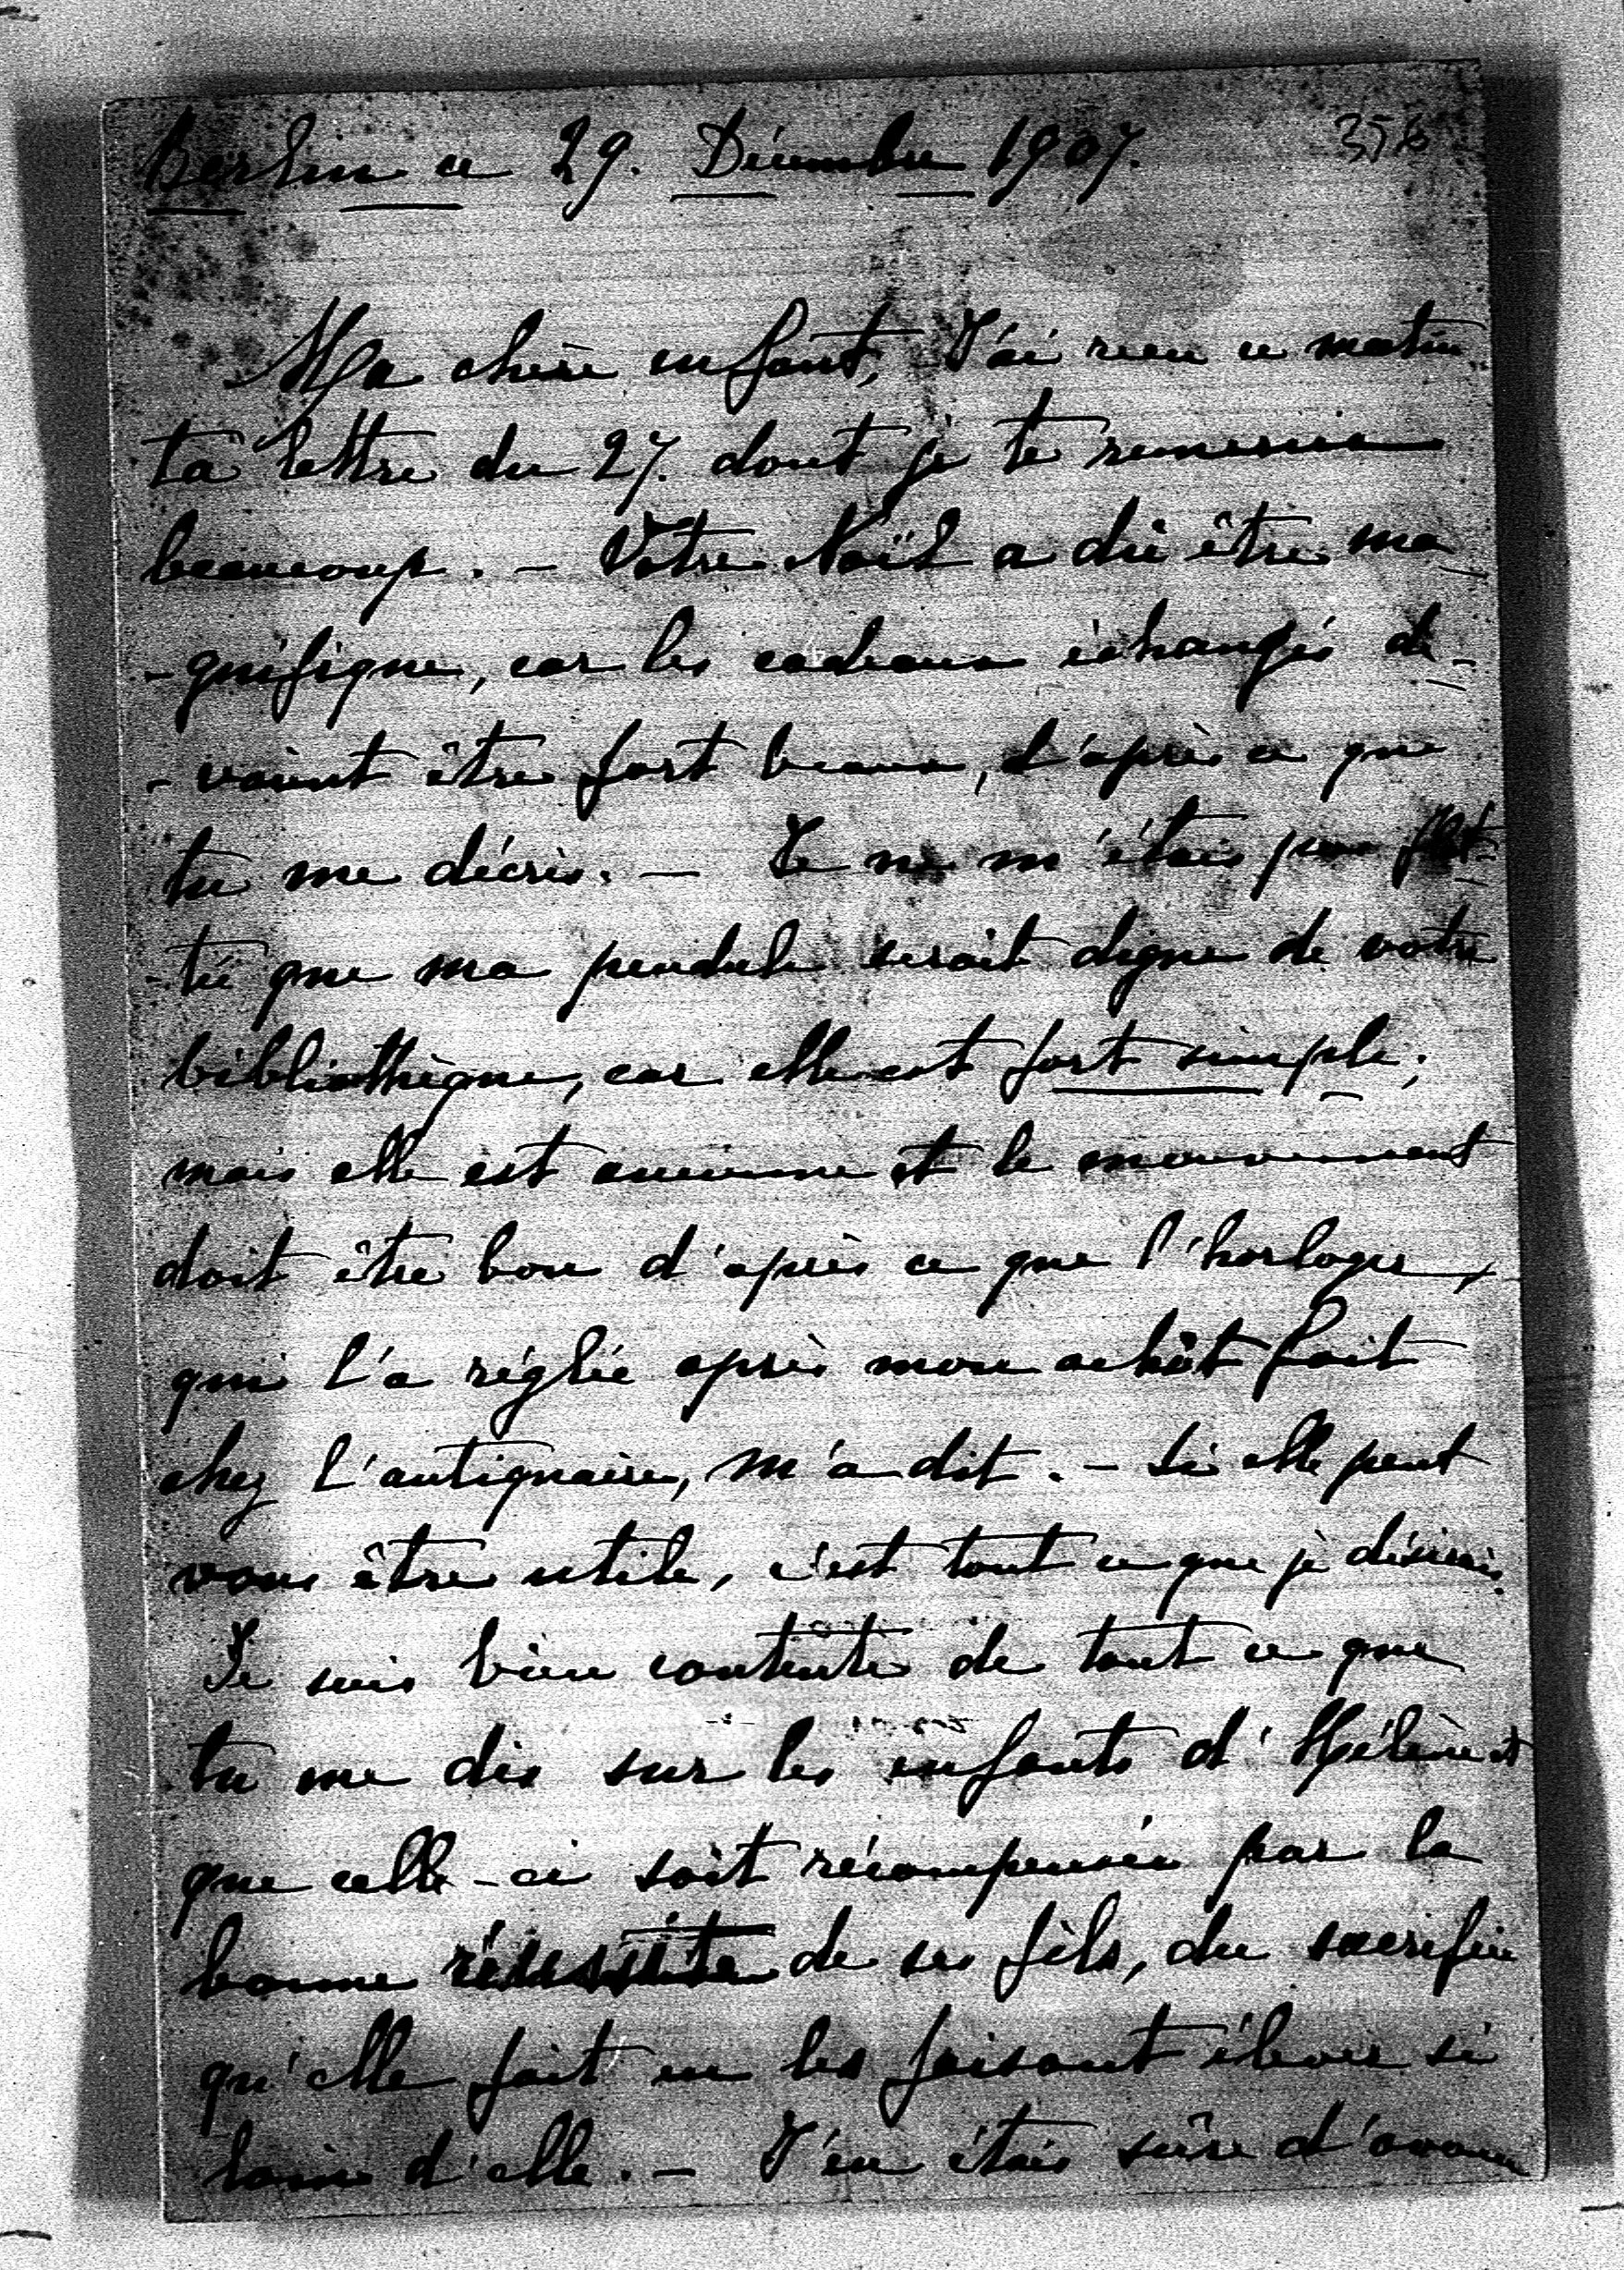 Berlin ce 29. Décembre 1907.
356
Ma chère enfant, J'ai reçu ce matin
ta lettre du 27. dont je te remercie
beaucoup. - Votre Noël a dû être ma-
-gnifique, car les cadeaux échangés de-
-vaient être fort beaux, d'après ce que
tu me décris. - Je ne m'étais pas flat-
-tée que ma pendule serait digne de votre
bibliothèque, car elle est fort simple;
mais elle est ancienne et le mouvement
doit être bon d'après ce que l'horloger,
qui l'a réglée après mon achat fait
chez l'antiquaire, m'a dit. - Si elle peut
vous être utile, c'est tout ce que je désirais.
Je suis bien contente de tout ce que
tu me dis sur les enfants d'Hélène et
que celle-ci soit récompensée par la
bonne réussite de ses fils, du sacrifice
qu'elle fait en les faisant élever si
loin d'elle. - J'en étais sûre d'avance